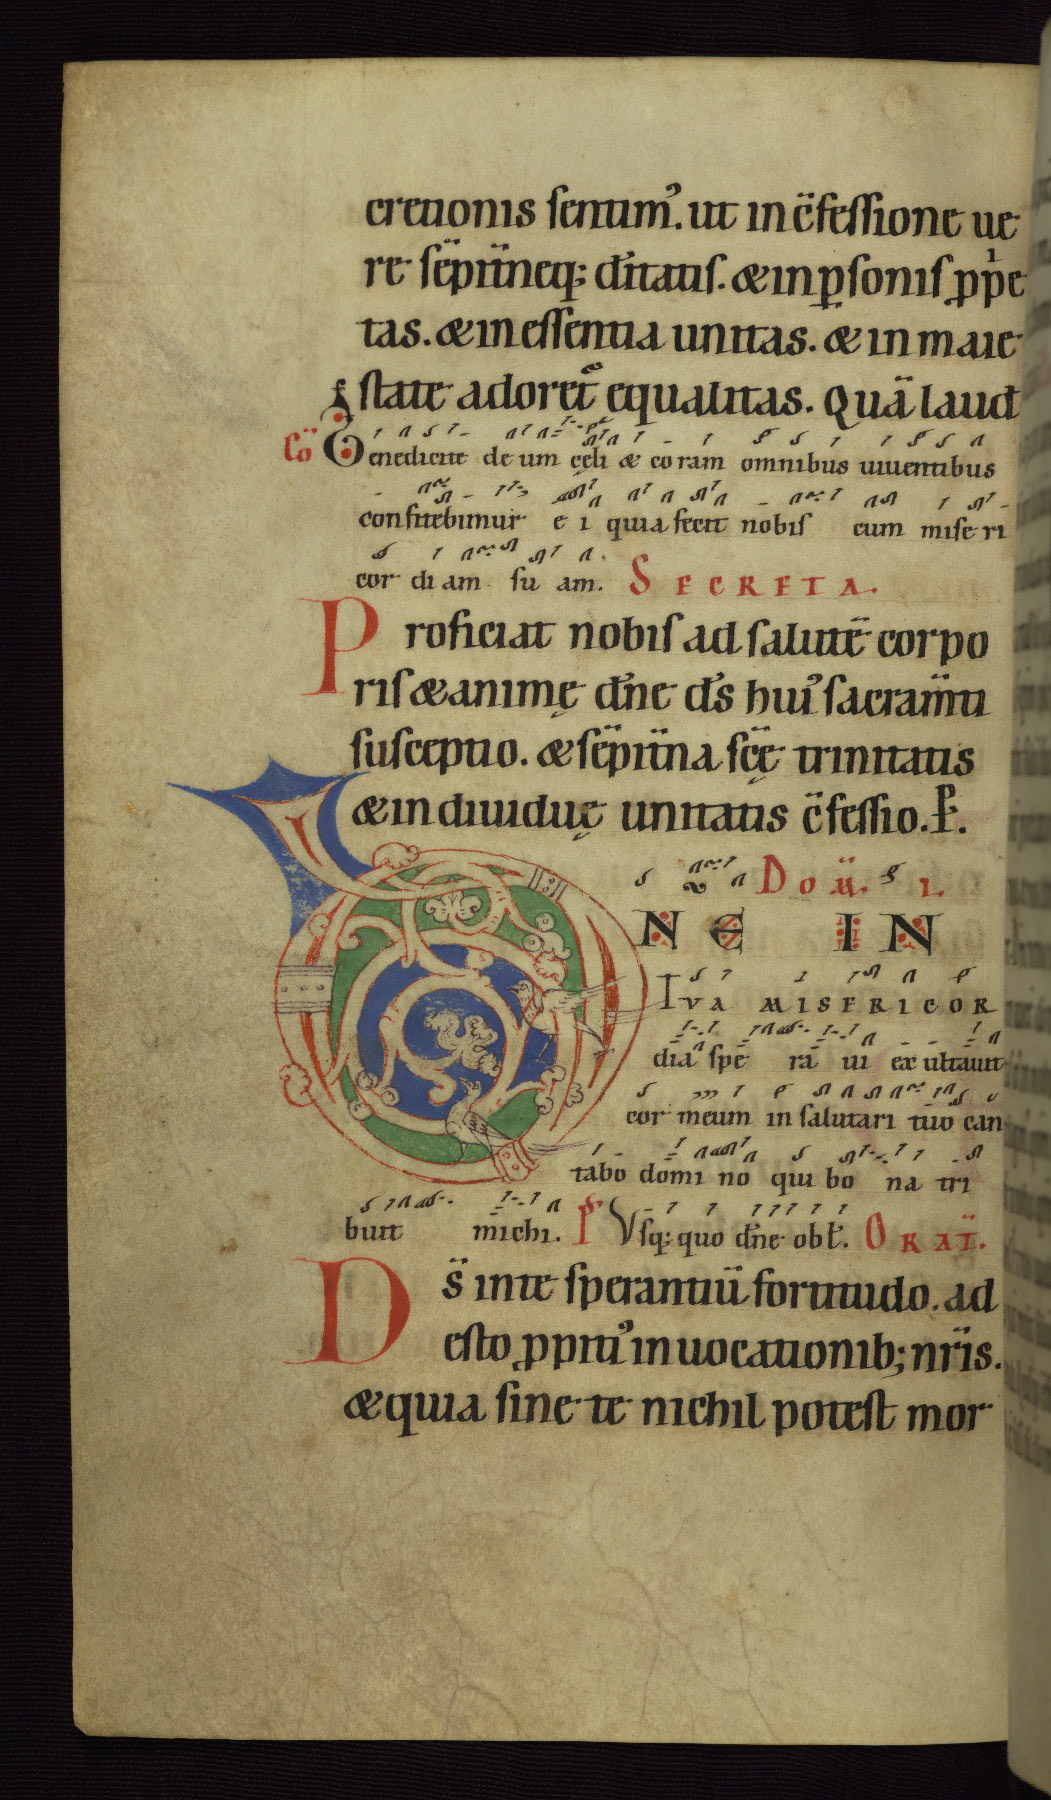 cretionis sentim᷒. ut in c̄fessione ue
re sēpit̄neq; d̄itatis. & in p̱sonis p̱p̱e
tas. & in essentia unitas. & in maie
state adoret᷒ equalitas. Quā laud̄
Cō Benedicite deum cęli & coram omnibus uiuentibus
confitebimur e i quia fecit nobis cum miseri
cor di am su am. SECRETA.
Proficiat nobis ad salutē corpo
ris & animę d̄ne d̄s hui᷒ sacram̄ti
susceptio. & sēpit̄na sc̄ę trinitatis
& indiuiduę unitatis c̄fessio. P̱.
DOM̄. I.
DNE IN
TUA MISERICOR
diā spe rā ui exultauit
cor meum in salutari tuo can
tabo domi no qui bo na tri
buit michi. P̄s Vsq; quo d̄ne obl̄. ORAT̄.
Ds̄ in te sperantiū fortitudo. ad
esto p̱piti᷒ inuocationib; nr̄is.
& quia sine te nichil potest mor